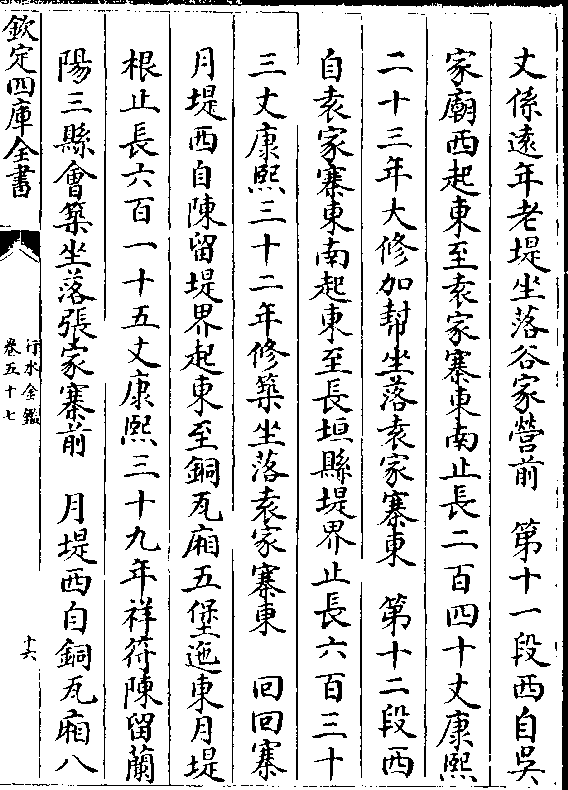 丈係遠年老堤坐落谷家營前　第十一段西自吳
家廟西起東至袁家寨東南止長二百四十丈康熙
二十三年大修加幇坐落袁家寨東　第十二段西
自袁家寨東南起東至長垣縣堤界止長六百三十
三丈康熙三十二年修築坐落袁家寨東　回回寨
月堤西自陳留堤界起東至銅瓦廂五堡迤東月堤
根止長六百一十五丈康熙三十九年祥符陳留蘭
陽三縣會築坐落張家寨前　月堤西自銅瓦廂八
欽定四庫全書
行水金鑑
卷五十七
十六